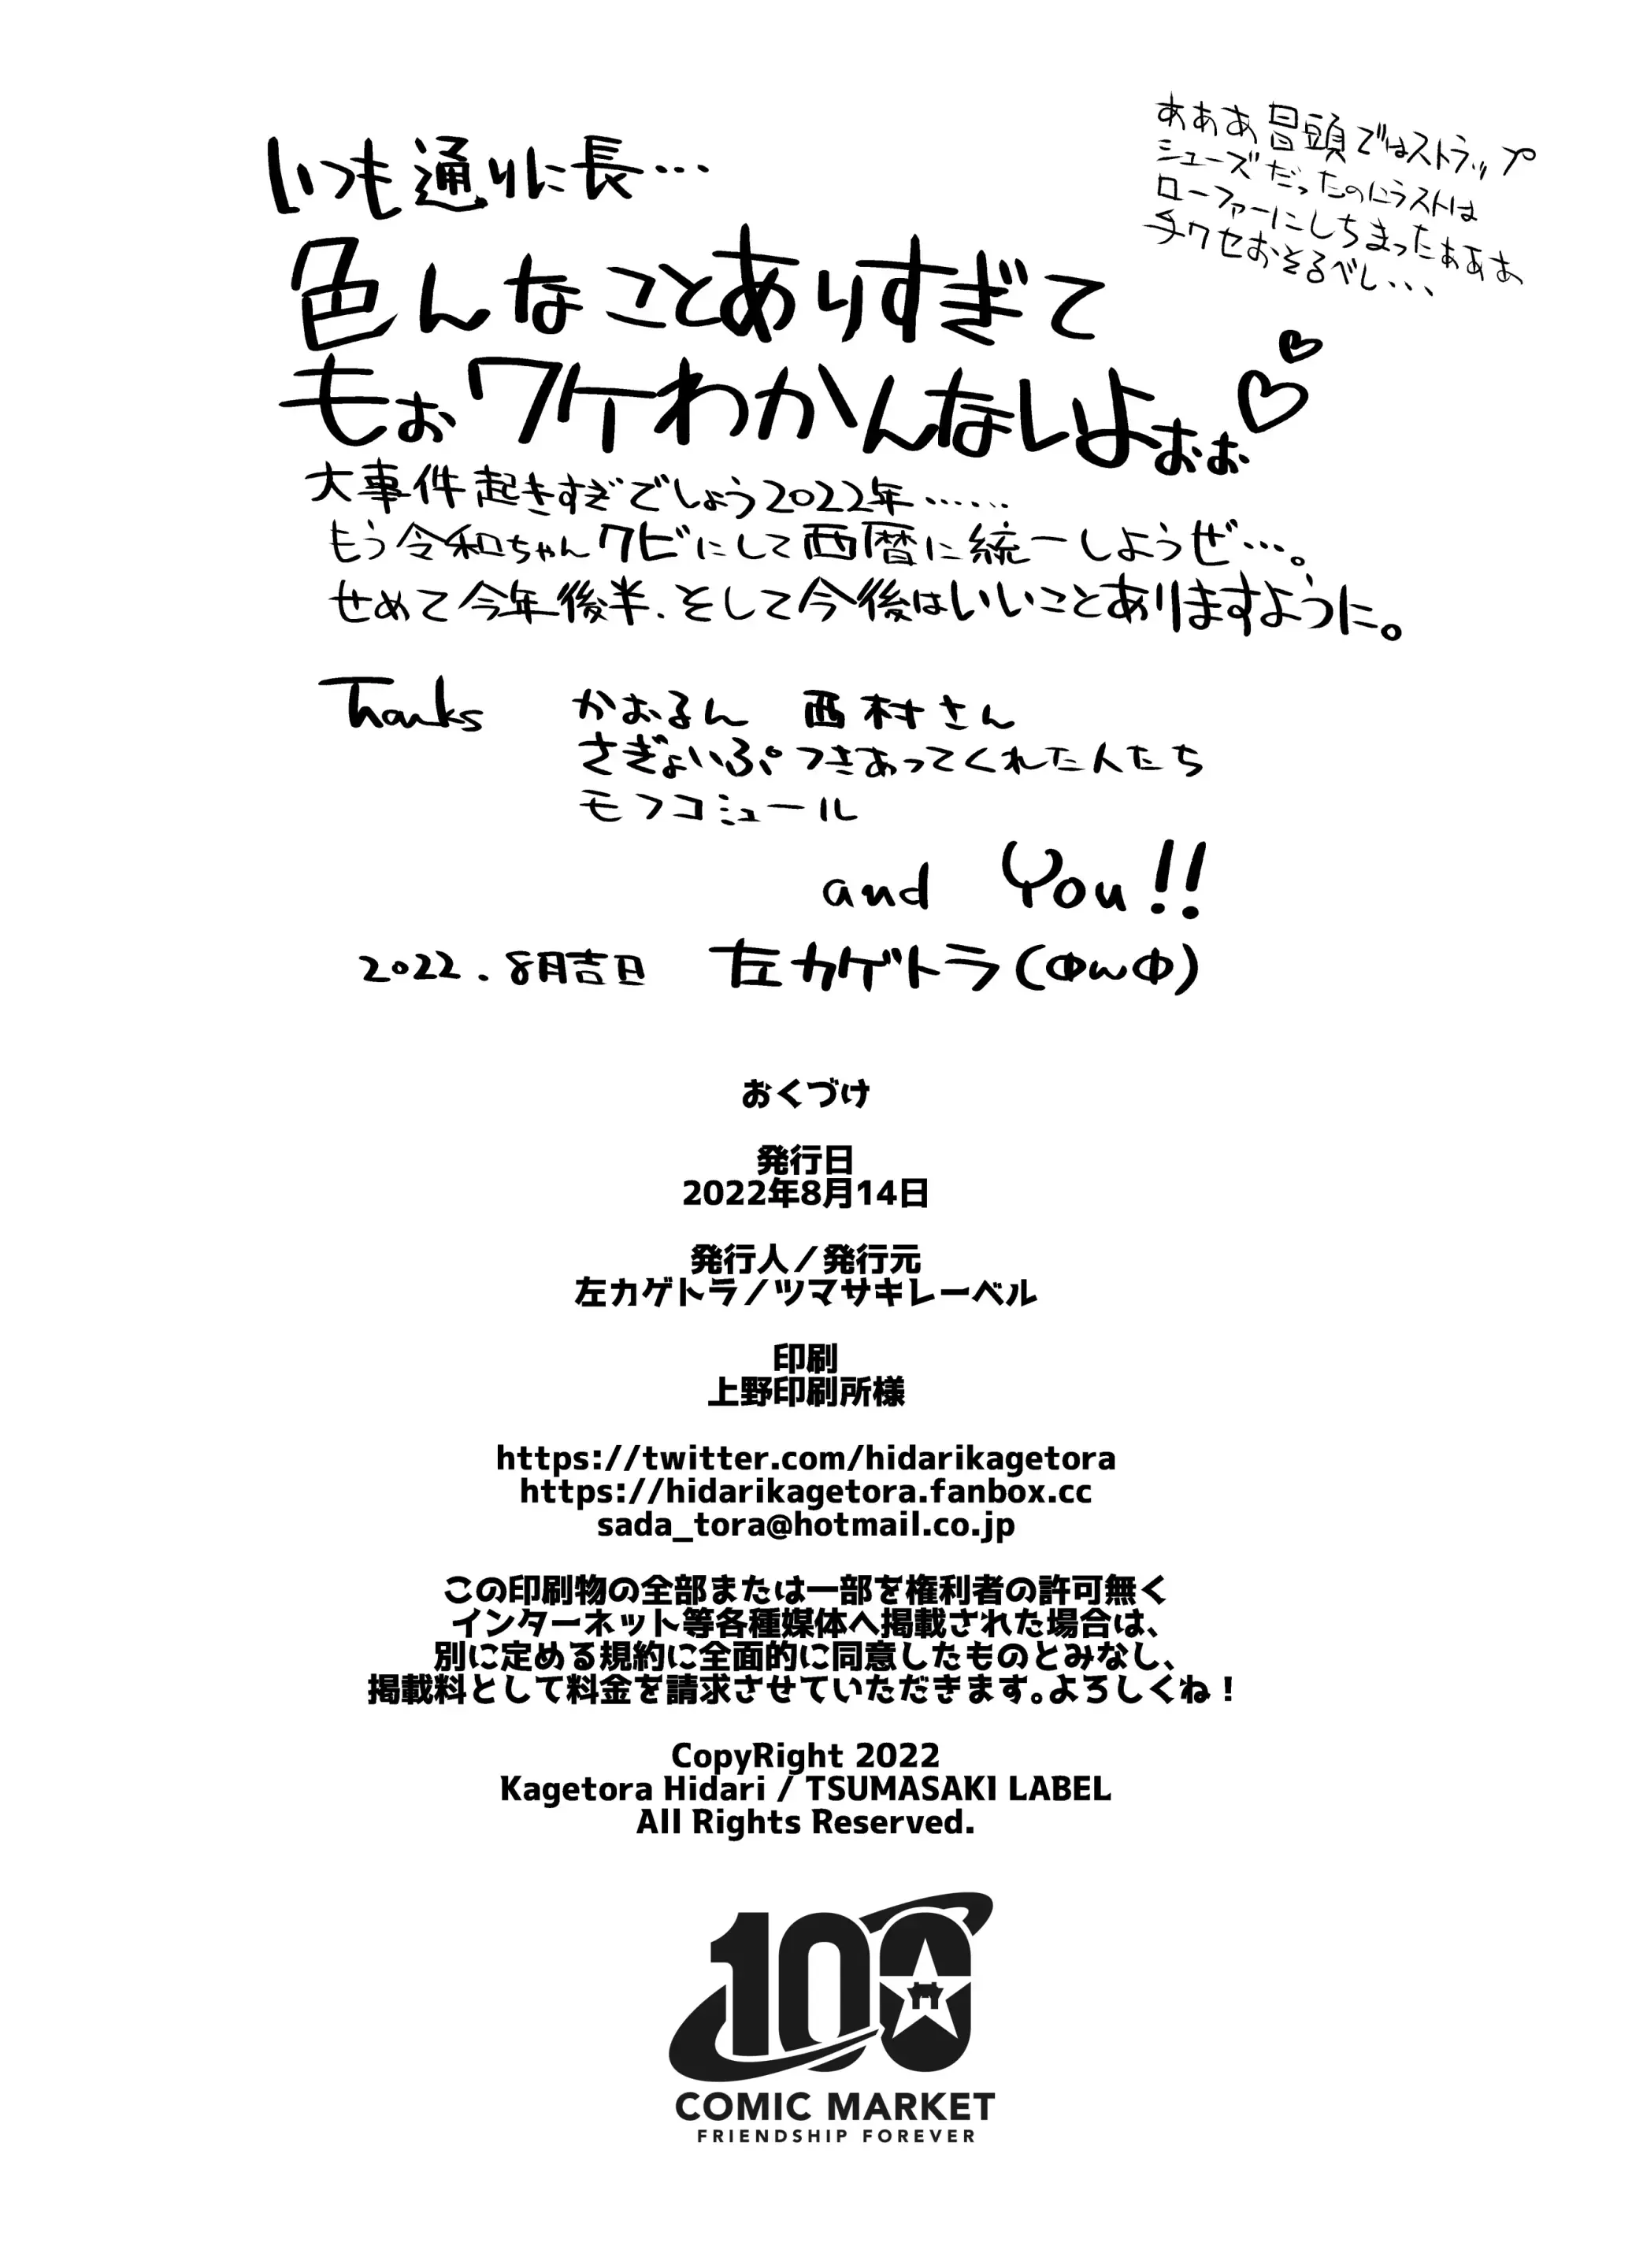 いつも通りに長…
あああ冒頭ではストラップ
シューズだったのにラストは
ローファーにしちまったぁああ
手クセおそるべし、、、
色んなことありすぎて
もぉワケわかんないよぉぉ♡♡
大事件起きすぎでしょう2022年……
もう令和ちゃんクビにして西暦に統一しようぜ…。
せめて今年後半、そして今後はいいことありますように。
Thanks かおるん 西村さん
さぎょいぷつきあってくれた人たち
モフコミュール
and You!!
2022.8月吉日 左カゲトラ(ФωФ)
おくづけ
発行日
2022年8月14日
発行人／発行元
左カゲトラ／ツマサキレーベル
印刷
上野印刷所様
https://twitter.com/hidarikagetora
https://hidarikagetora.fanbox.cc
sada_tora@hotmail.co.jp
この印刷物の全部または一部を権利者の許可無く
インターネット等各種媒体へ掲載された場合は、
別に定める規約に全面的に同意したものとみなし、
掲載料として料金を請求させていただきます。よろしくね！
CopyRight 2022
Kagetora Hidari / TSUMASAKI LABEL
All Rights Reserved.
100
COMIC MARKET
FRIENDSHIP FOREVER